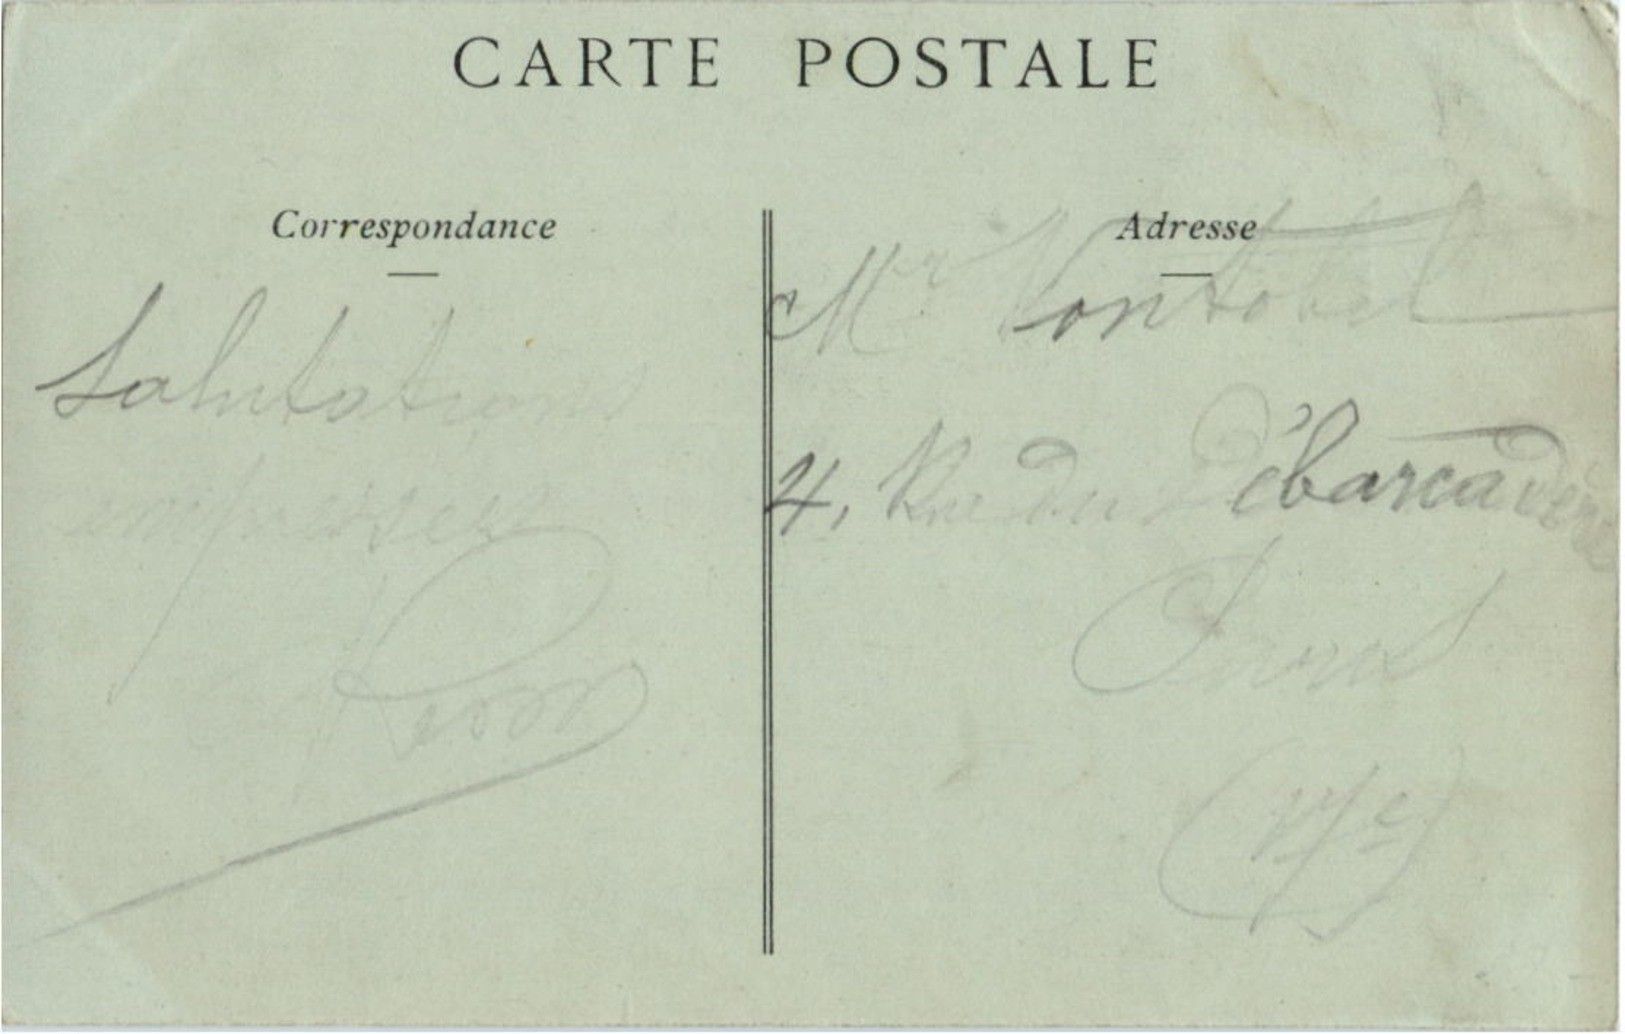 CARTE POSTALE
Correspondance
Salutations
empressées
Adresse
Mr Vontobel
4, Rue du Débarcadère
Paris